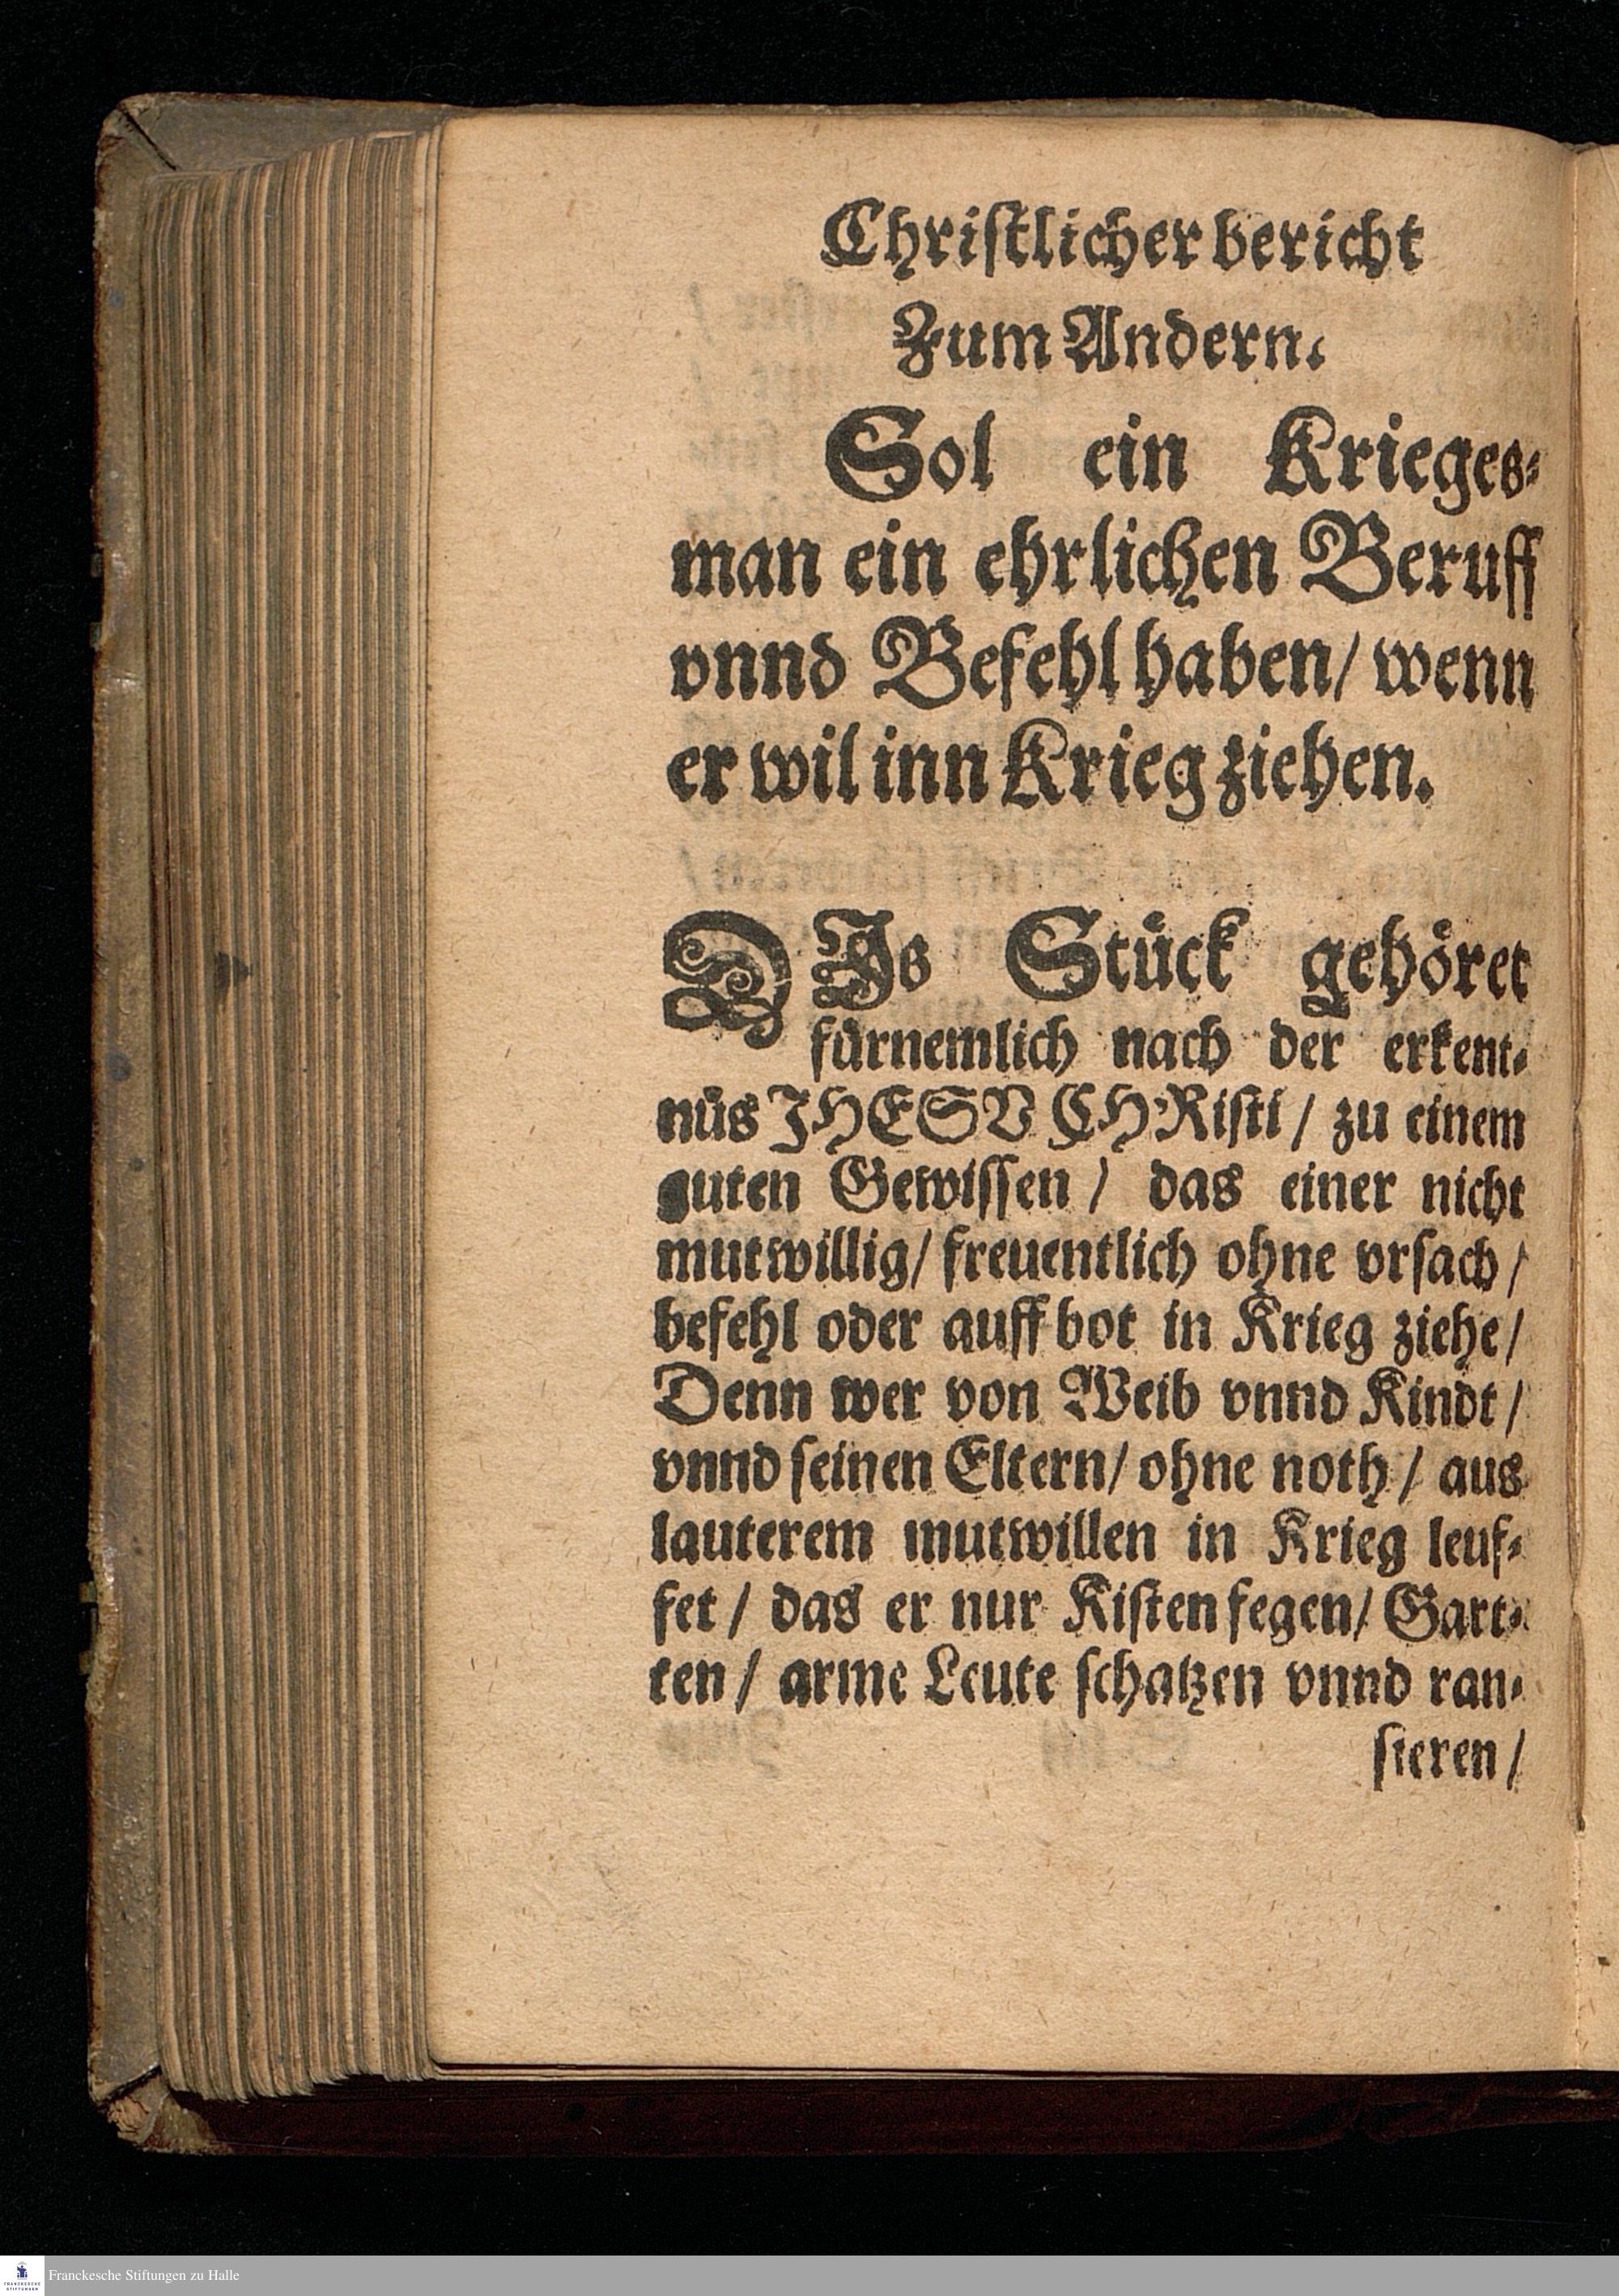 Christlicher bericht
Zum Andern.
Sol ein Krieges⸗
man ein ehrlichen Beruff
vnnd Befehl haben/ wenn
er wil inn Krieg ziehen.
DIs Stück gehöret
fürnemlich nach der erkent⸗
nüs JHESV CHRisti / zu einem
guten Gewissen / das einer nicht
mutwillig/ freuentlich ohne vrsach /
befehl oder auff bot in Krieg ziehe /
Denn wer von Weib vnnd Kindt /
vnnd seinen Eltern/ ohne noth / aus
lauterem mutwillen in Krieg leuf⸗
fet / das er nur Kisten fegen/ Gart⸗
ten / arme Leute schatzen vnnd ran⸗
sieren /
FRANCKESCHE STIFTUNGEN
Franckesche Stiftungen zu Halle